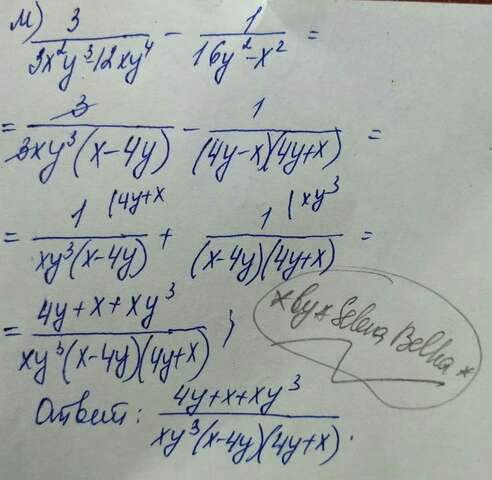 м) 3/(3x²y³-12xy⁴) - 1/(16y²-x²) =
= 3/(3xy³(x-4y)) - 1/((4y-x)(4y+x)) =
= 1 (4y+x/(xy³(x-4y)) + 1 (xy³/((x-4y)(4y+x)) =
= (4y+x+xy³)/(xy³(x-4y)(4y+x)) ;
*by*Selena Belha*
Ответ: (4y+x+xy³)/(xy³(x-4y)(4y+x)).